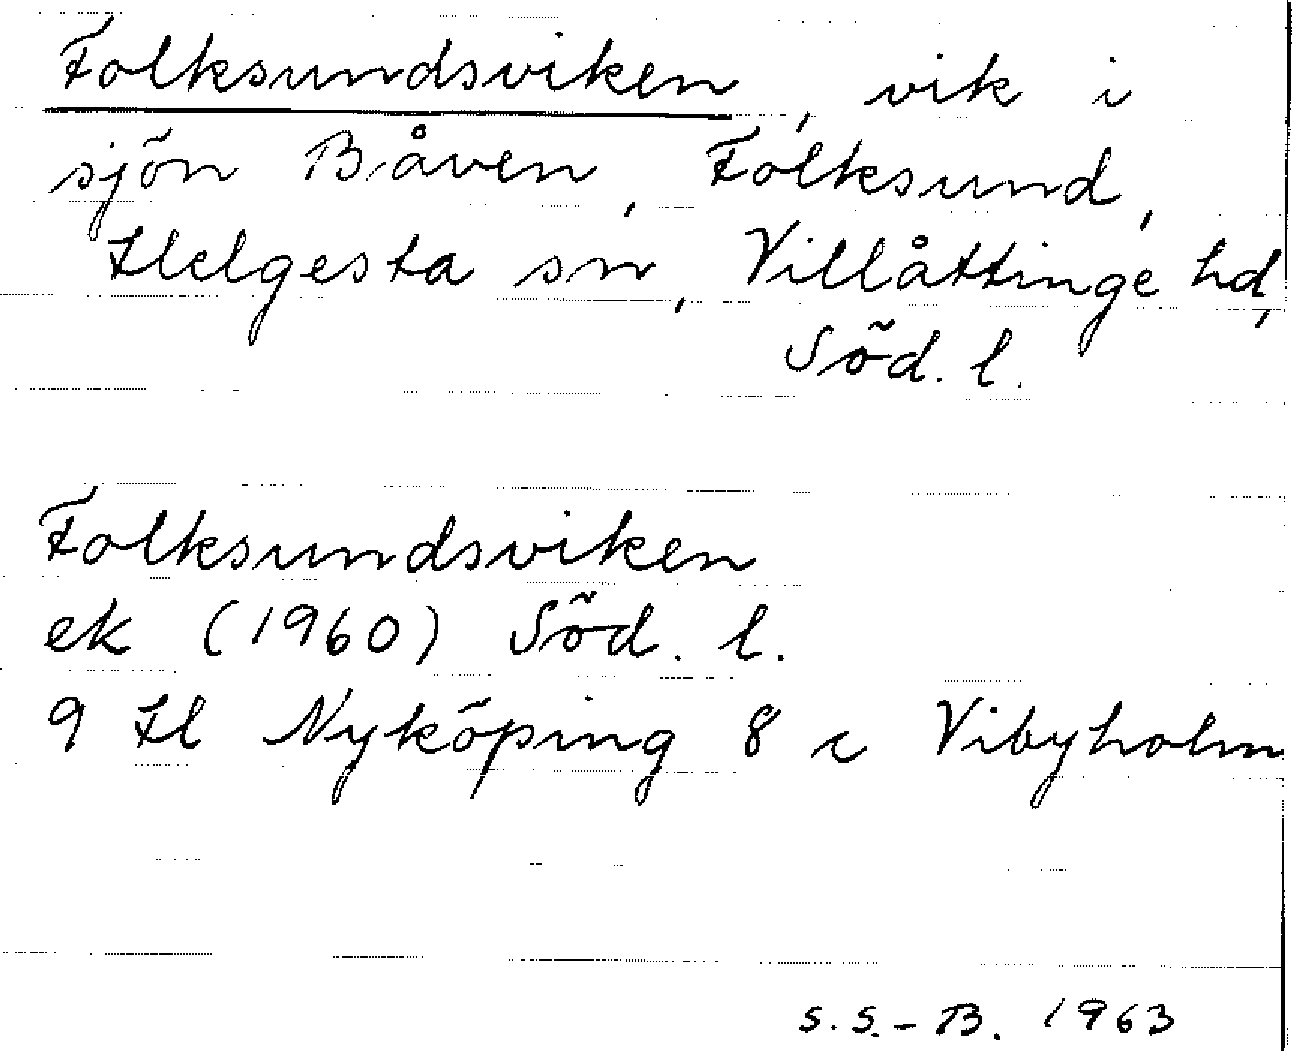 Folksundsviken, vik i
sjön Båven, Folksund,
Helgesta sn, Villåttinge hd,
Söd. l.
Folksundsviken
ek (1960) Söd. l.
9 H Nyköping 8 c Vibyholm
S.S.-B. 1963